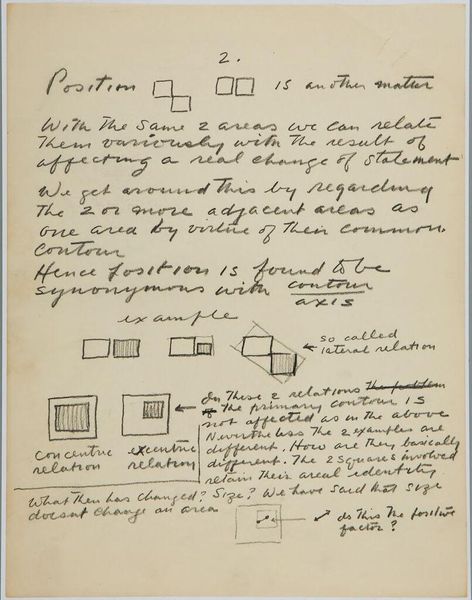 2.
Position is another matter
With the same 2 areas we can relate
them variously with the result of
affecting a real change of statement
We get around this by regarding
the 2 or more adjacent areas as
one area by virtue of their common
contour
Hence position is found to be
synonymous with contour
axis
example
so called
lateral relation
In these 2 relations the problem
of the primary contour is
not affected as in the above
Nevertheless the 2 examples are
different. How are they basically
different. The 2 squares involved
retain their areal identity.
concentric excentric
relation relation
What then has changed? Size? We have said that size
doesnt change an area
Is this the positive
factor?